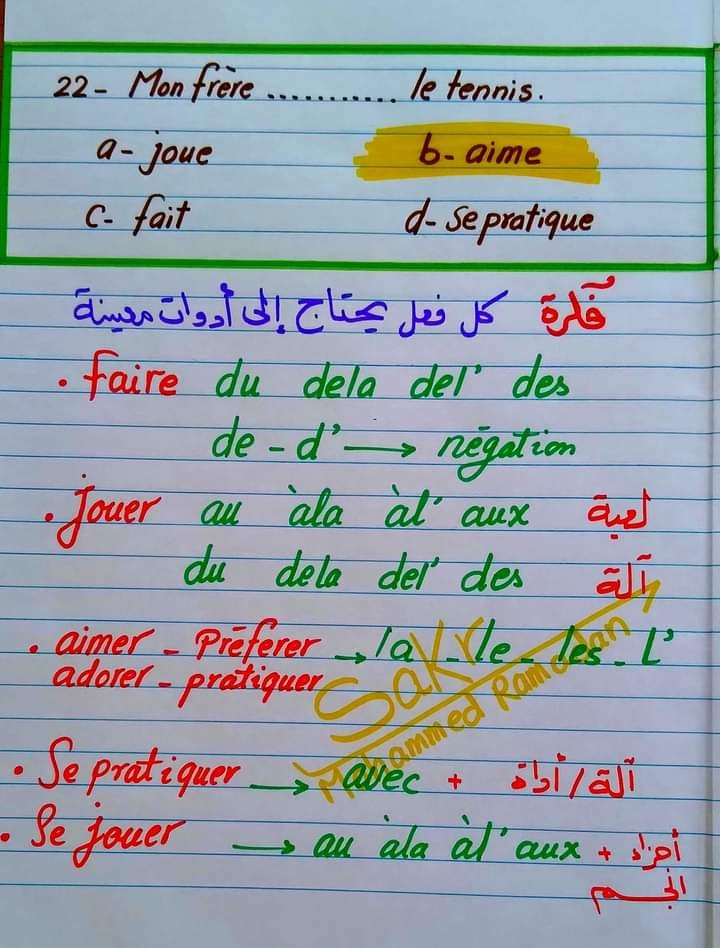 22- Mon frère ........... le tennis.
a- joue b- aime
c- fait d- se pratique
فكرة كل فعل يحتاج إلى أدوات معينة
• faire du dela del' des
de - d' → négation
• Jouer au àla àl' aux لعبة
du dela del' des آلة
• aimer - Préferer → la - le - les - L'
adorer - pratiquer
Sakr
Mohammed Ramadan
• Se pratiquer → avec + آلة / أداة
• Se jouer → au àla àl' aux + أجزاء
الجسم